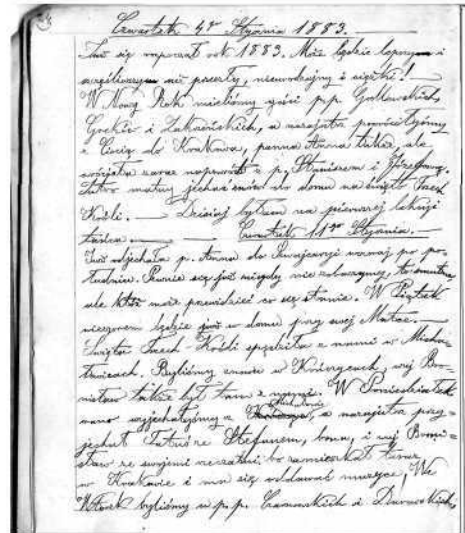 Czwartek 4go Stycznia 1883.
Już się rozpoczął rok 1883. Może będzie lepszym i
szczęśliwszym niż przeszły, nieurodzajny i ciężki!
W Nowy Rok mieliśmy gości p.p.
i, a nazajutrz
z Ciocią do Krakowa, panna Anna także, ale
zaraz z p. i Józefową.
Jutro mamy jechać znów do domu na święto Trzech
Króli. — Dzisiaj byłam na pierwszej lekcyi
tańca. — Czwartek 11go Stycznia. —
Już odjechała p. Anna do Szwajcaryi wczoraj po po-
łudniu. Pewnie się już nigdy nie zobaczymy, to smutne,
ale któż może przewidzieć co się stanie. W Piątek
wieczorem będzie już w domu przy swej Matce. —
Święto Trzech Króli spędziła z nami w Micha-
łowicach. Byliśmy znowu w, wuj Bro-
nisław także był tam z nami. W Poniedziałek
rano wyjechaliśmy z Michałowic, a nazajutrz przy-
jechał Tatuś ze Stefanem, bona, i wuj Broni-
sław ze swojemi rzeczami, bo zamieszkał teraz
w Krakowie i ma się oddawać muzyce. We
Wtorek byliśmy u p.p. i